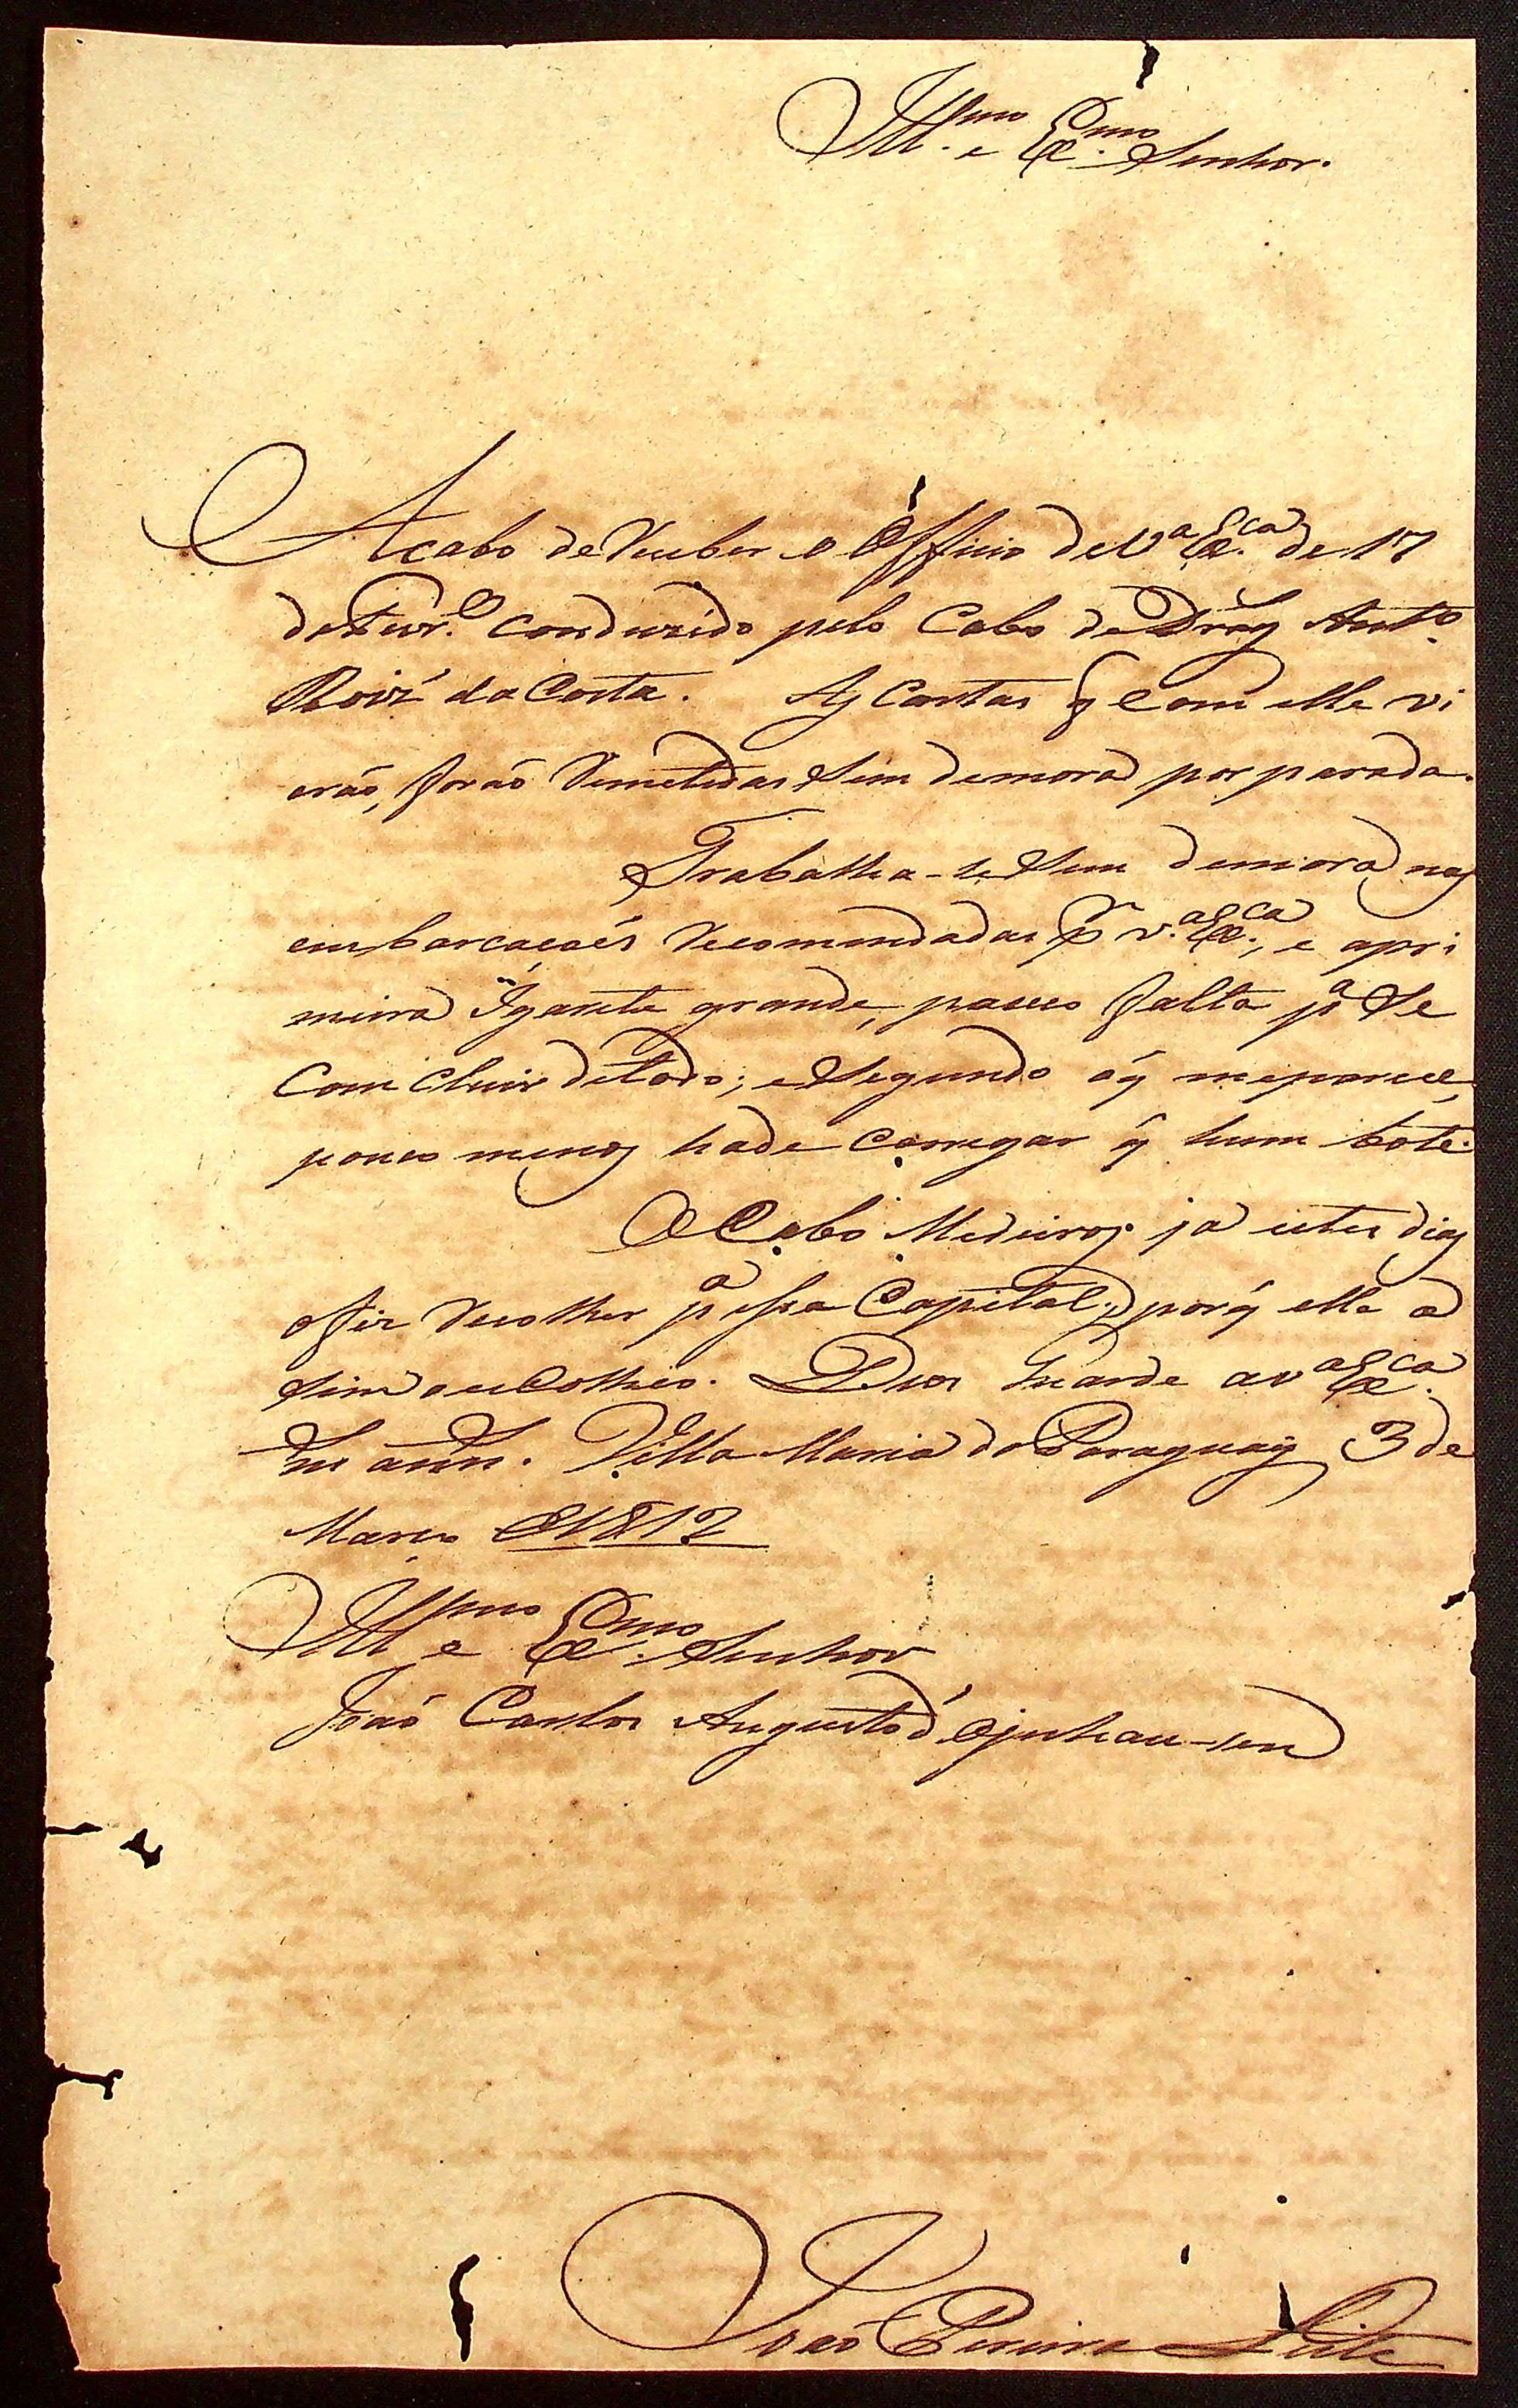 Ill.mo e Ex.mo Senhor.
Acabo de Receber o Officio de V.a Ex.ca de 17
de Fevr.o conduzido pelo Cabo de Drag Ant.o
Roiz' da Costa. As Cartas q Com elle vi
erão, forão Remetidas Sem demora por parada.
Trabalha-se Sem demora nas
embarcaçoẽs Recomendadas p.r V.a Ex.ca, e apri
meira Igarite grande, pouco falta p.a Se
Com cluir detodo; eSegundo óq meparece,
pouco menos hade Carregar q hum bote.
O Cabo Medeiros ja estes dias
ofiz Recolher p.a essa Capital, porq elle a
Sim o escolheo. Deos Guarde a V.a Ex.ca
m.s ann.s. Villa Maria do Paraguay 3 de
Março de 1812
Ill.mo e Ex.mo Senhor
João Carlos Augusto d'Oeynhau-sen
João Pereira Leite